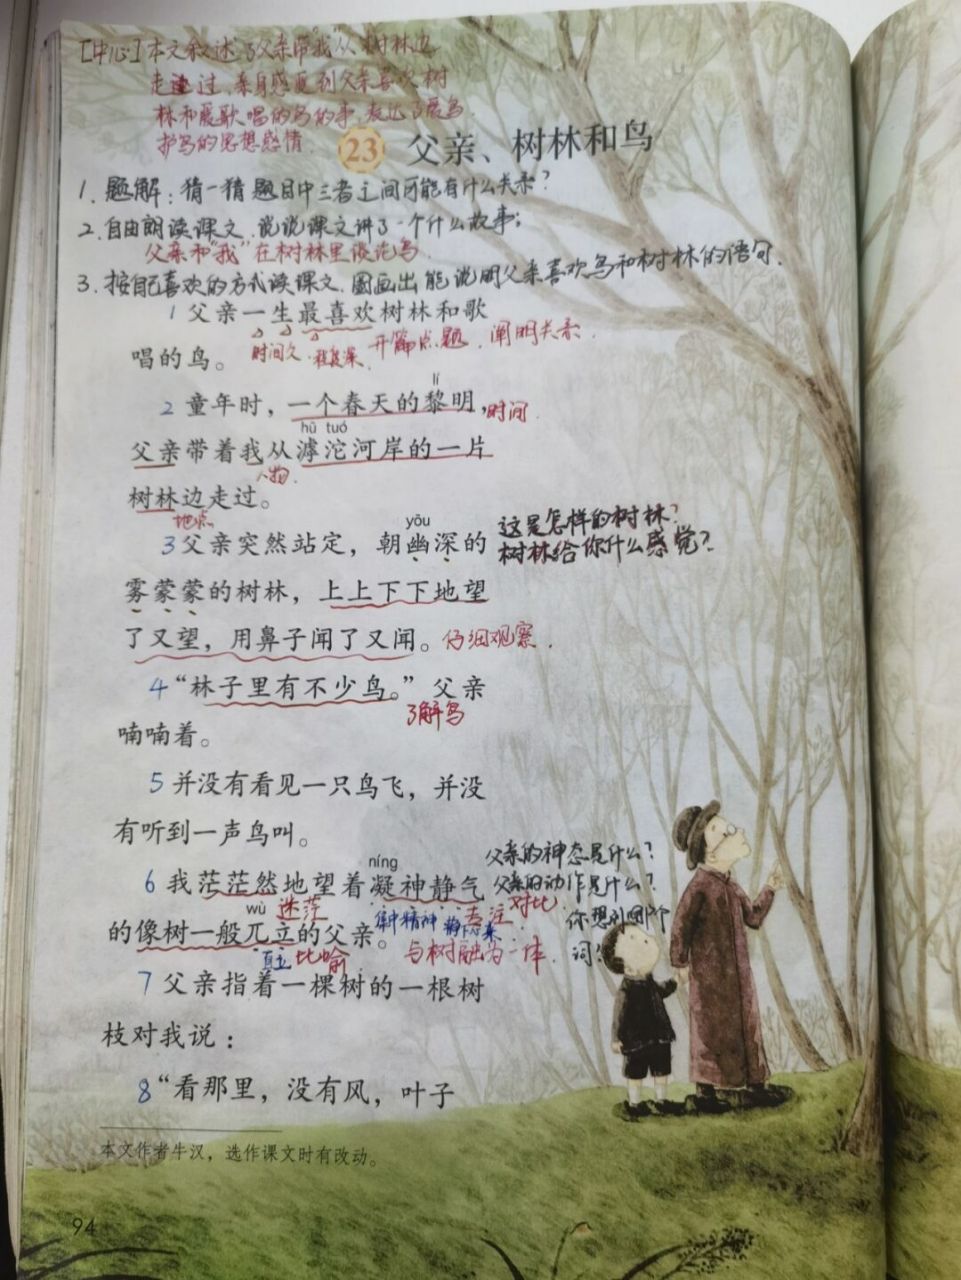 [中心]本文叙述了父亲带"我"从树林边
走过,亲身感觉到父亲喜欢树
林和爱歌唱的鸟的事,表达了爱鸟
护鸟的思想感情.
23 父亲、树林和鸟
1.题解:猜一猜题目中三者之间可能有什么关系?
2.自由朗读课文,说说课文讲了一个什么故事;
父亲和"我"在树林里谈论鸟.
3.按自己喜欢的方式读课文,圈画出能说明父亲喜欢鸟和树林的语句.
1 父亲一生最喜欢树林和歌
唱的鸟。
时间久.程度深. 开篇点题,阐明关系.
lí
2 童年时,一个春天的黎明,时间.
hū tuó
父亲带着我从滹沱河岸的一片
人物.
树林边走过。
地点
yōu
3 父亲突然站定,朝幽深的
这是怎样的树林?
树林给你什么感觉?
雾蒙蒙的树林,上上下下地望
了又望,用鼻子闻了又闻。仔细观察.
4 “林子里有不少鸟。”父亲
了解鸟
喃喃着。
5 并没有看见一只鸟飞,并没
有听到一声鸟叫。
父亲的神态是什么?
níng
6 我茫茫然地望着凝神静气
父亲的动作是什么?
wù 迷茫 集中精神 专注 对比 你想到哪个
的像树一般兀立的父亲。
直立 比喻 与树融为一体. 词?
7 父亲指着一棵树的一根树
枝对我说:
8 “看那里,没有风,叶子
本文作者牛汉,选作课文时有改动。
94